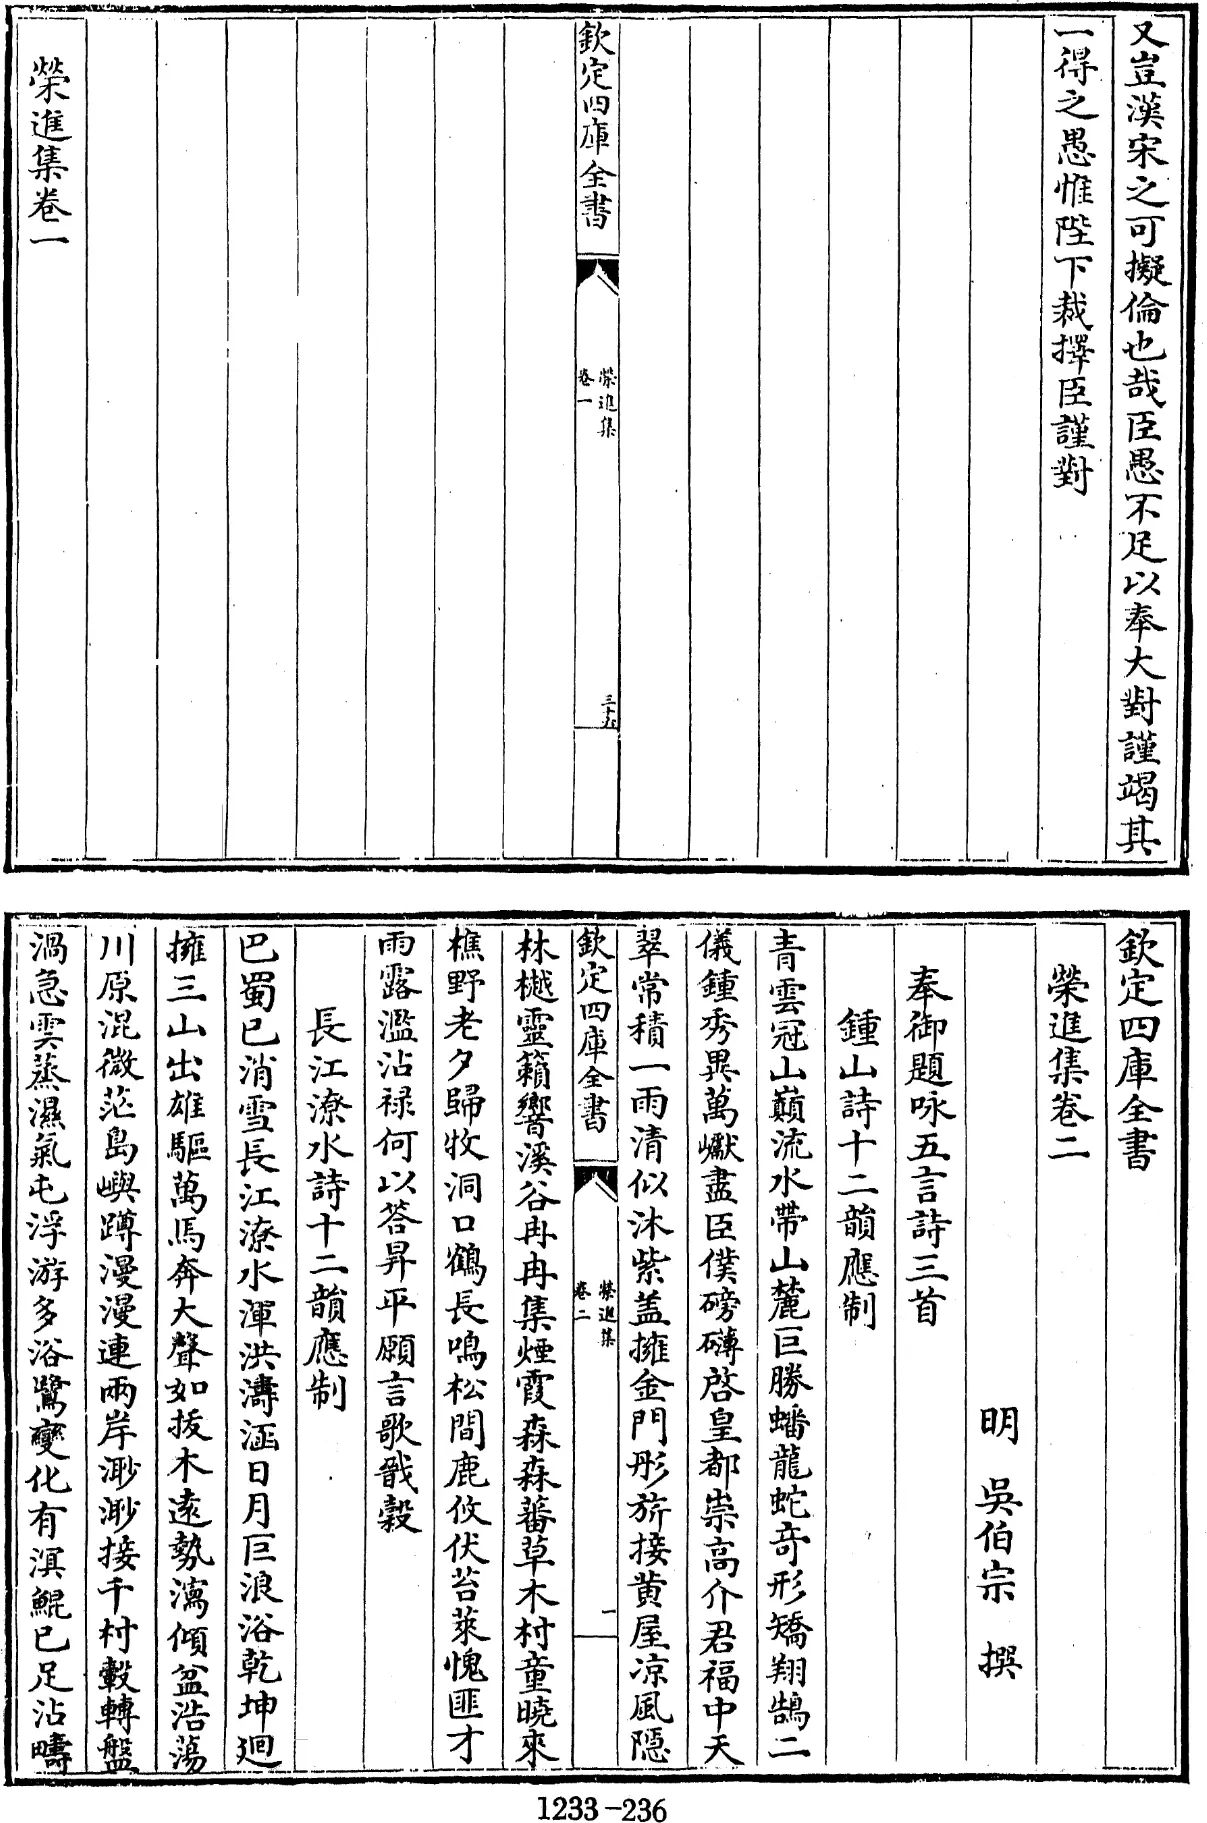 又豈漢宋之可擬倫也哉臣愚不足以奉大對謹竭其
一得之愚惟陛下裁擇臣謹對
欽定四庫全書
榮進集
卷一
三十五
榮進集卷一
欽定四庫全書
榮進集卷二
明 吳伯宗 撰
奉御題咏五言詩三首
鍾山詩十二韻應制
青雲冠山巔流水帶山麓巨勝蟠龍蛇奇形矯翔鵠二
儀鍾秀異萬巘盡臣僕磅礴啓皇都崇高介君福中天
翠常積一雨清似沐紫蓋擁金門彤旂接黄屋凉風隱
欽定四庫全書
榮進集
卷二
一
林樾靈籟響溪谷冉冉集煙霞森森蕃草木村童曉來
樵野老夕歸牧洞口鶴長鳴松間鹿攸伏苔萊愧匪才
雨露濫沾禄何以答昇平願言歌戩穀
長江潦水詩十二韻應制
巴蜀已消雪長江潦水渾洪濤涵日月巨浪浴乾坤廻
擁三山出雄驅萬馬奔大聲如拔木遠勢㵧傾盆浩蕩
川原混微茫島嶼蹲漫漫連兩岸渺渺接千村轂轉盤
渦急雲蒸濕氣屯浮游多浴鷺變化有溟鯤已足沾疇
1233-236